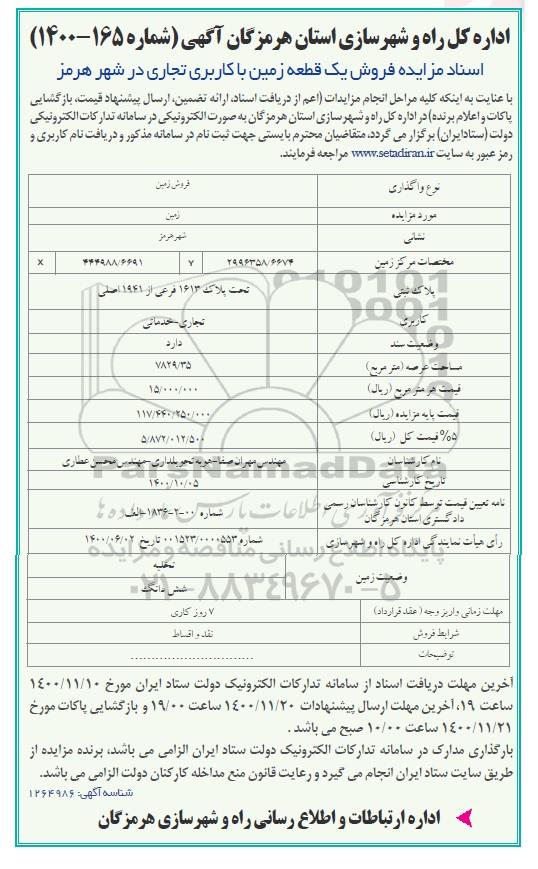 اداره کل راه و شهرسازی استان هرمزگان آگهی (شماره ۱۶۵-۱۴۰۰)
اسناد مزایده فروش یک قطعه زمین با کاربری تجاری در شهر هرمز
با عنایت به اینکه کلیه مراحل انجام مزایدات (اعم از دریافت اسناد، ارائه تضمین، ارسال پیشنهاد قیمت، بازگشایی
پاکات و اعلام برنده) در اداره کل راه و شهرسازی استان هرمزگان به صورت الکترونیکی در سامانه تدارکات الکترونیکی
دولت (ستاد ایران) برگزار می گردد، متقاضیان محترم بایستی جهت ثبت نام در سامانه مذکور و دریافت نام کاربری و
رمز عبور به سایت www.setadiran.ir مراجعه فرمایند.
نوع واگذاری فروش زمین
مورد مزایده زمین
نشانی شهر هرمز
مختصات مرکز زمین ۲۹۹۶۳۵۸/۶۶۷۴ Y ۴۴۴۹۸۸/۶۶۹۱ X
پلاک ثبتی تحت پلاک ۱۶۱۳ فرعی از ۱۹۴۱ اصلی
کاربری تجاری-خدماتی
وضعیت سند دارد
مساحت عرصه (متر مربع) ۷۸۲۹/۳۵
قیمت هر متر مربع (ریال) ۱۵/۰۰۰/۰۰۰
قیمت پایه مزایده (ریال) ۱۱۷/۴۴۰/۲۵۰/۰۰۰
۵% قیمت کل (ریال) ۵/۸۷۲/۰۱۲/۵۰۰
نام کارشناسان مهندس مهران صفا-هوبه تحویلداری-مهندس محسن عطاری
تاریخ کارشناسی ۱۴۰۰/۱۰/۰۵
نامه تعیین قیمت توسط کانون کارشناسان رسمی
دادگستری استان هرمزگان شماره ۰۰-۲-۱۸۳۶-الف
رأی هیأت نمایندگی اداره کل راه و شهرسازی شماره ۰۰۱۵۲۳/۰۰۰۰۵۵۳ تاریخ ۱۴۰۰/۰۶/۰۲
وضعیت زمین تخلیه
شش دانگ
مهلت زمانی واریز وجه (عقد قرارداد) ۷ روز کاری
شرایط فروش نقد و اقساط
توضیحات ..............................
آخرین مهلت دریافت اسناد از سامانه تدارکات الکترونیک دولت ستاد ایران مورخ ۱۴۰۰/۱۱/۱۰
ساعت ۱۹، آخرین مهلت ارسال پیشنهادات ۱۴۰۰/۱۱/۲۰ ساعت ۱۹/۰۰ و بازگشایی پاکات مورخ
۱۴۰۰/۱۱/۲۱ ساعت ۱۰/۰۰ صبح می باشد .
بارگذاری مدارک در سامانه تدارکات الکترونیک دولت ستاد ایران الزامی می باشد، برنده مزایده از
طریق سایت ستاد ایران انجام می گیرد و رعایت قانون منع مداخله کارکنان دولت الزامی می باشد.
شناسه آگهی: ۱۲۶۴۹۸۶
اداره ارتباطات و اطلاع رسانی راه و شهرسازی هرمزگان
ParsNamadData
پایگاه اطلاع رسانی مناقصه و مزایده
۰۲۱-۸۸۳۴۹۶۷۰-۵